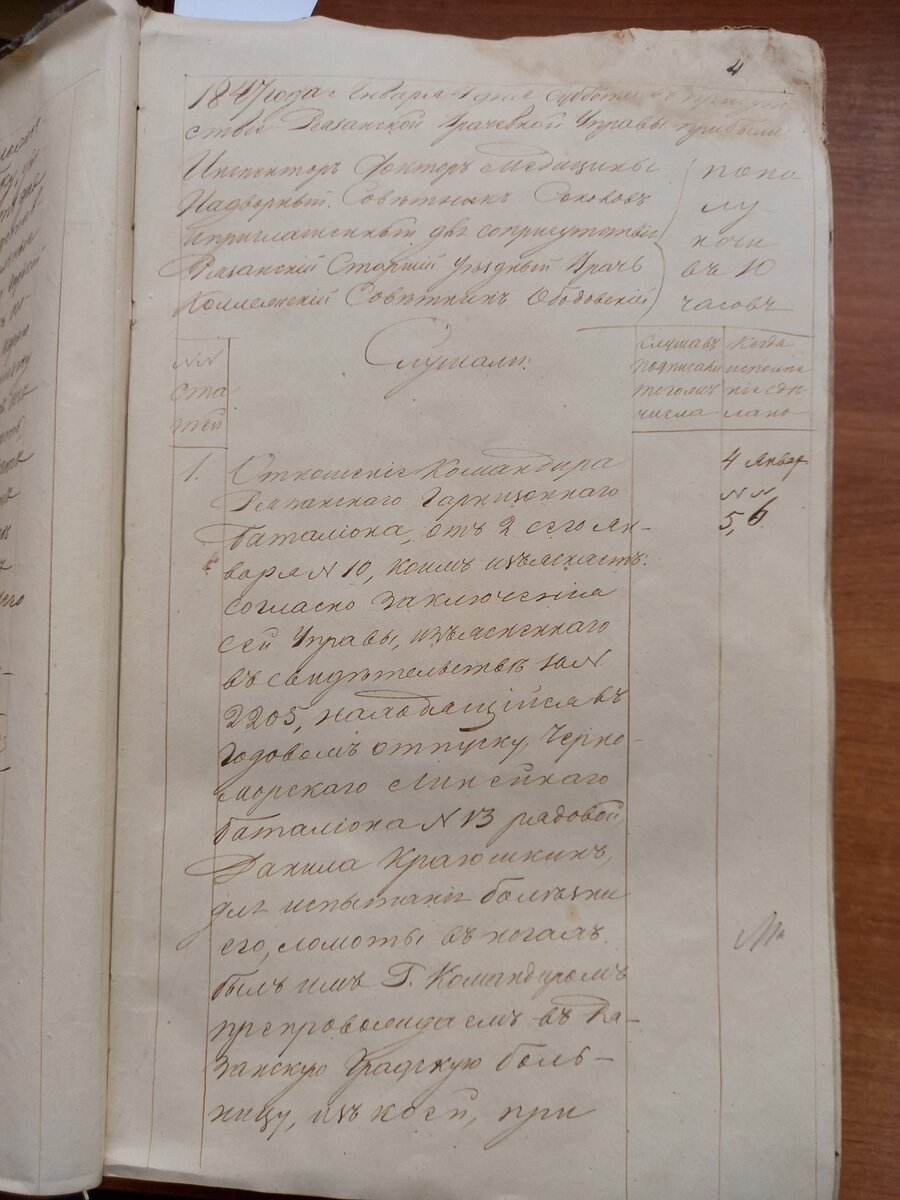 4
1847 года Января 4 дня Суббота въ присут
ствіе Рязанской Врачебной Управы прибыли
Инспекторъ Докторъ Медицины
Надворный Совѣтникъ
и приглашенный для соприсутствія
Рязанскій Старшій Уѣздный Врачь
Коллежскій Совѣтникъ Ободовскій
попо
лу-
ночи
въ 10
часовъ
Слушали:
NN
Ста
тей
Слушавъ
подписали
тогожъ
числа
Когда
исполне
ніе сдѣ
лано
1. Отношеніе Командира
Рязанскаго Гарнизоннаго
баталіона, отъ 2 сего Ян-
варя N 10, коимъ изъясняетъ:
согласно заключенія
сей Управы, изъясненнаго
въ свидѣтельствѣ за N
2205, находящійся въ
годовомъ отпуску, Черно-
морскаго Линейнаго
баталіона N 13 рядовой
Данила Краюшкинъ,
для испытанія болѣзни
его, ломоты въ ногахъ
былъ имъ Г. Командиромъ
препровождаемъ въ Ря-
занскую Градскую боль-
ницу, изъ коей, при
4 Январ
NN
5, 6